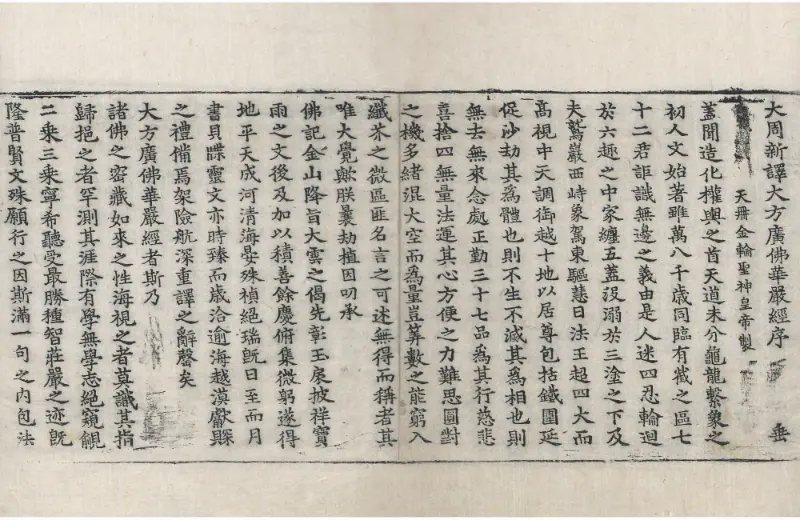 大周新譯大方廣佛華嚴經序 垂
天冊金輪聖神皇帝製
蓋聞造化權輿之首天道未分龜龍繫象之
初人文始著雖萬八千歲同臨有截之區七
十二君詎識無邊之義由是人迷四忍輪迴
於六趣之中家纏五蓋没溺於三塗之下及
夫鷲巖西峙象駕東驅慧日法王超四大而
高視中天調御越十地以居尊包括鐵圍延
促沙劫其爲體也則不生不滅其爲相也則
無去無來念處正勤三十七品爲其行慈悲
喜捨四無量法運其心方便之力難思圓對
之機多緒混大空而爲量豈算數之能窮入
纖芥之微區匪名言之可述無得而稱者其
唯大覺歟朕曩劫植因叨承
佛記金山降旨大雲之偈先彰玉扆披祥寶
雨之文後及加以積善餘慶俯集微躬遂得
地平天成河清海晏殊楨絕瑞旣日至而月
書貝牒靈文亦時臻而歲洽逾海越漠獻賝
之禮備焉架險航深重譯之辭罄矣
大方廣佛華嚴經者斯乃
諸佛之密藏如來之性海視之者莫識其指
歸挹之者罕測其涯際有學無學志絕窺覦
二乘三乘寧希聽受最勝種智莊嚴之迹旣
隆普賢文殊願行之因斯滿一句之內包法